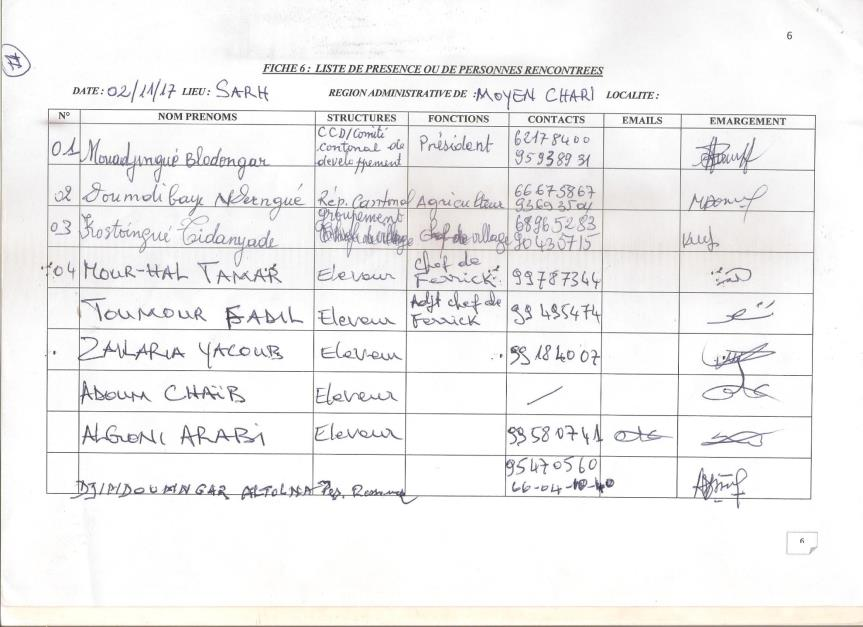 6
FICHE 6 : LISTE DE PRESENCE OU DE PERSONNES RENCONTREES
DATE : 02/11/17 LIEU : SARH REGION ADMINISTRATIVE DE : MOYEN CHARI LOCALITE :
N° NOM PRENOMS STRUCTURES FONCTIONS CONTACTS EMAILS EMARGEMENT
01 Mouadjingué Blodongar CCD/Comité cantonal de developpement Président 62178400 95938931
02 Doumdibaye Rép. Cantonal Agriculteur 66675867
03 Kostoingué Tidanyade groupement Chef de village 68965283 90435715
04 MOUR-HAL TAMAR Eleveur Chef de Ferrick 99787344
TOUMOUR FADIL Eleveur Adjt chef de Ferrick 99495474
ZAKARIA YACOUB Eleveur 99184007
ADOUM CHAÏB Eleveur
ALGONI ARABI Eleveur 99580741
ALTOLNA 95470560
6